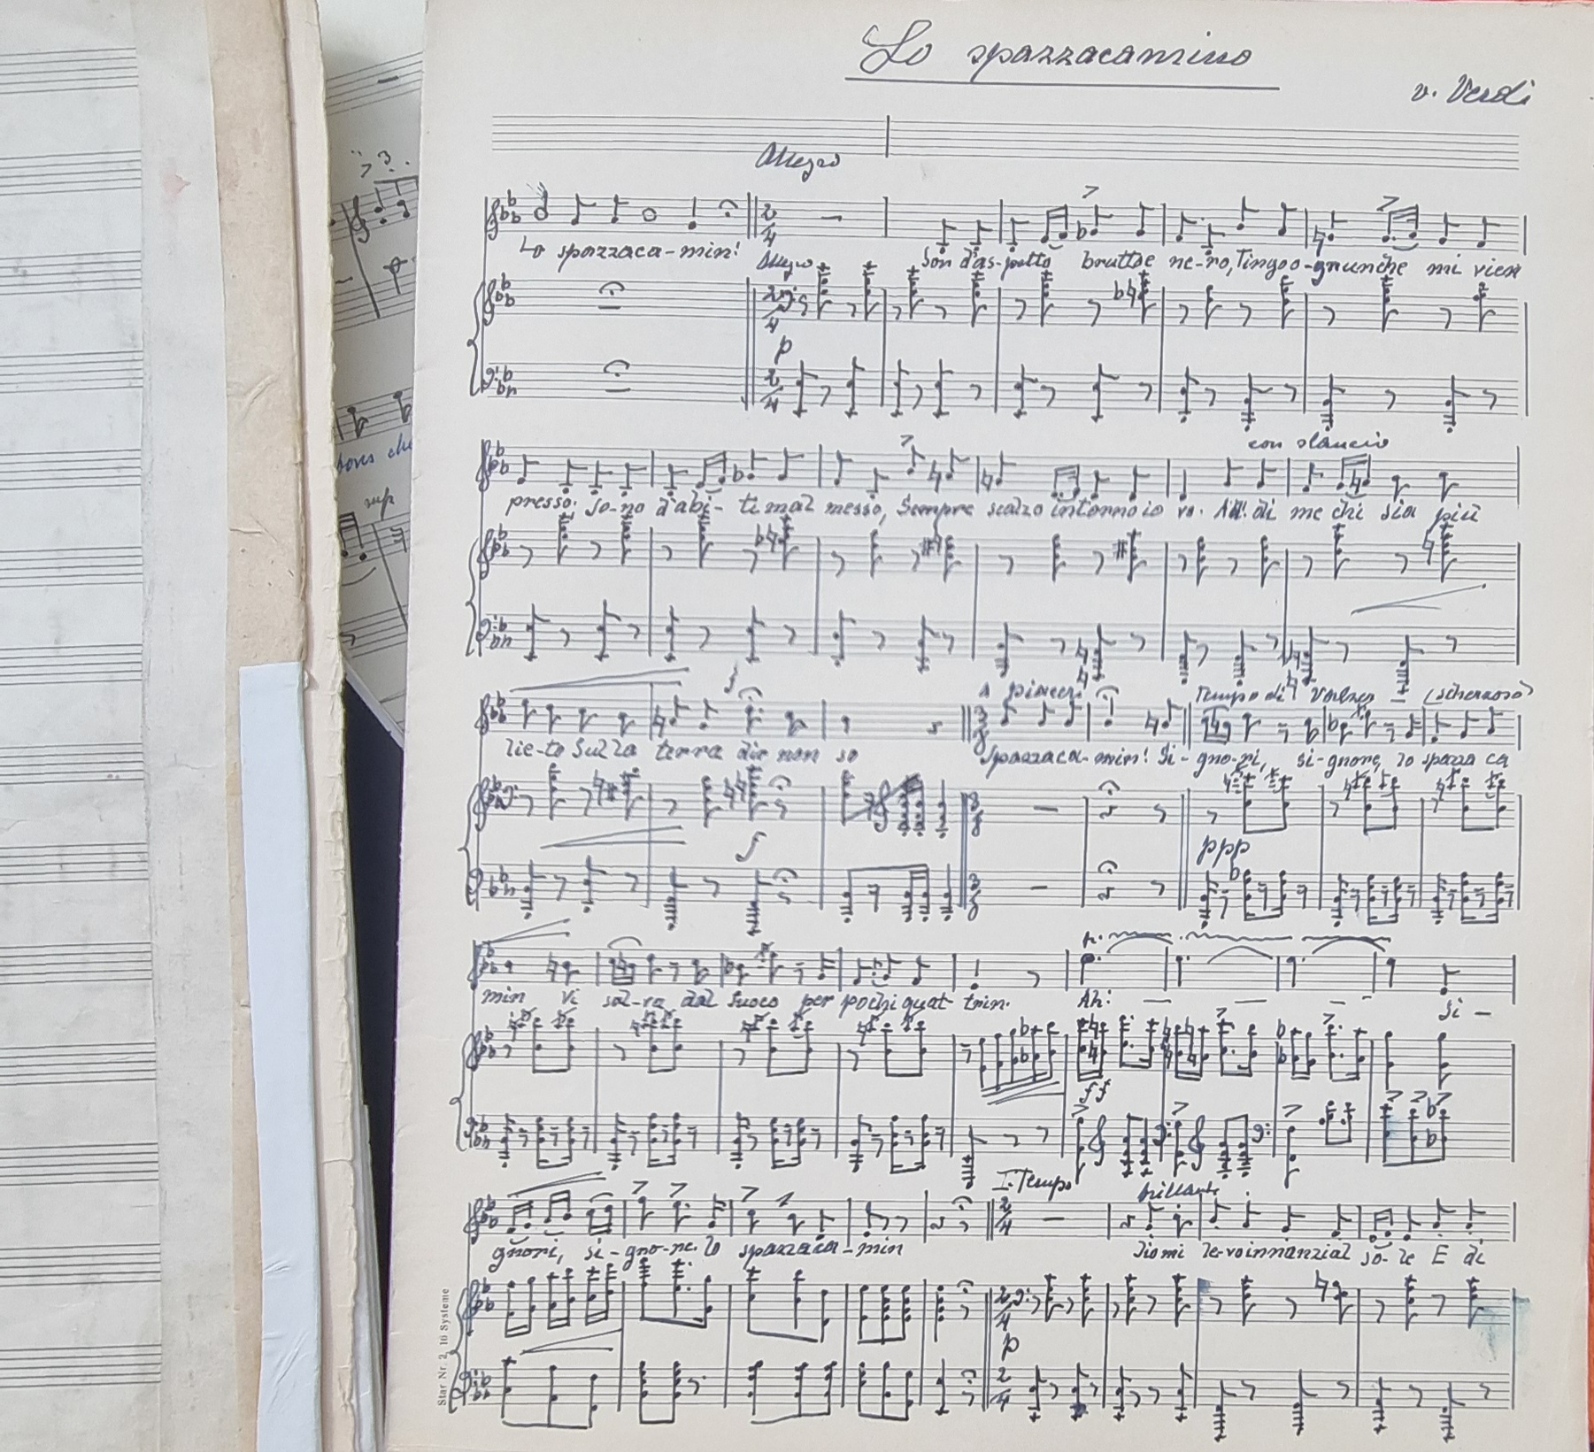 Lo spazzacamino
v. Verdi
Allegro
Lo spazzaca-min!
Allegro
Son d'as-petto brutto e ne-ro, Tingo o-gnun che mi vien
p
con slancio
presso; So-no d'abi-ti mal messo, Sempre scalzo intorno io vo. Ah! di me chi sia più
f
a piacer
Tempo di Valzer
(scherzoso)
lie-to Sulla terra dir non so
Spazzaca-min! Si-gno-ri, si-gnore, lo spazza ca
f
ppp
min vi sal-va dal fuoco per pochi quat-trin. Ah! Si-
ff
I. Tempo
brillante
gnori, si-gno-re. lo spazzaca-min
Io mi levo innanzi al so-le E di
p
Star Nr. 2, 10 Systeme
3